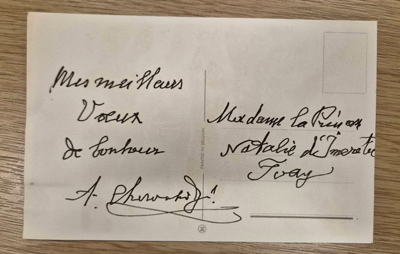 Mes meilleurs
Voeux
de bonheur
A.
Madame la Princesse
Natalie d'Imeretie